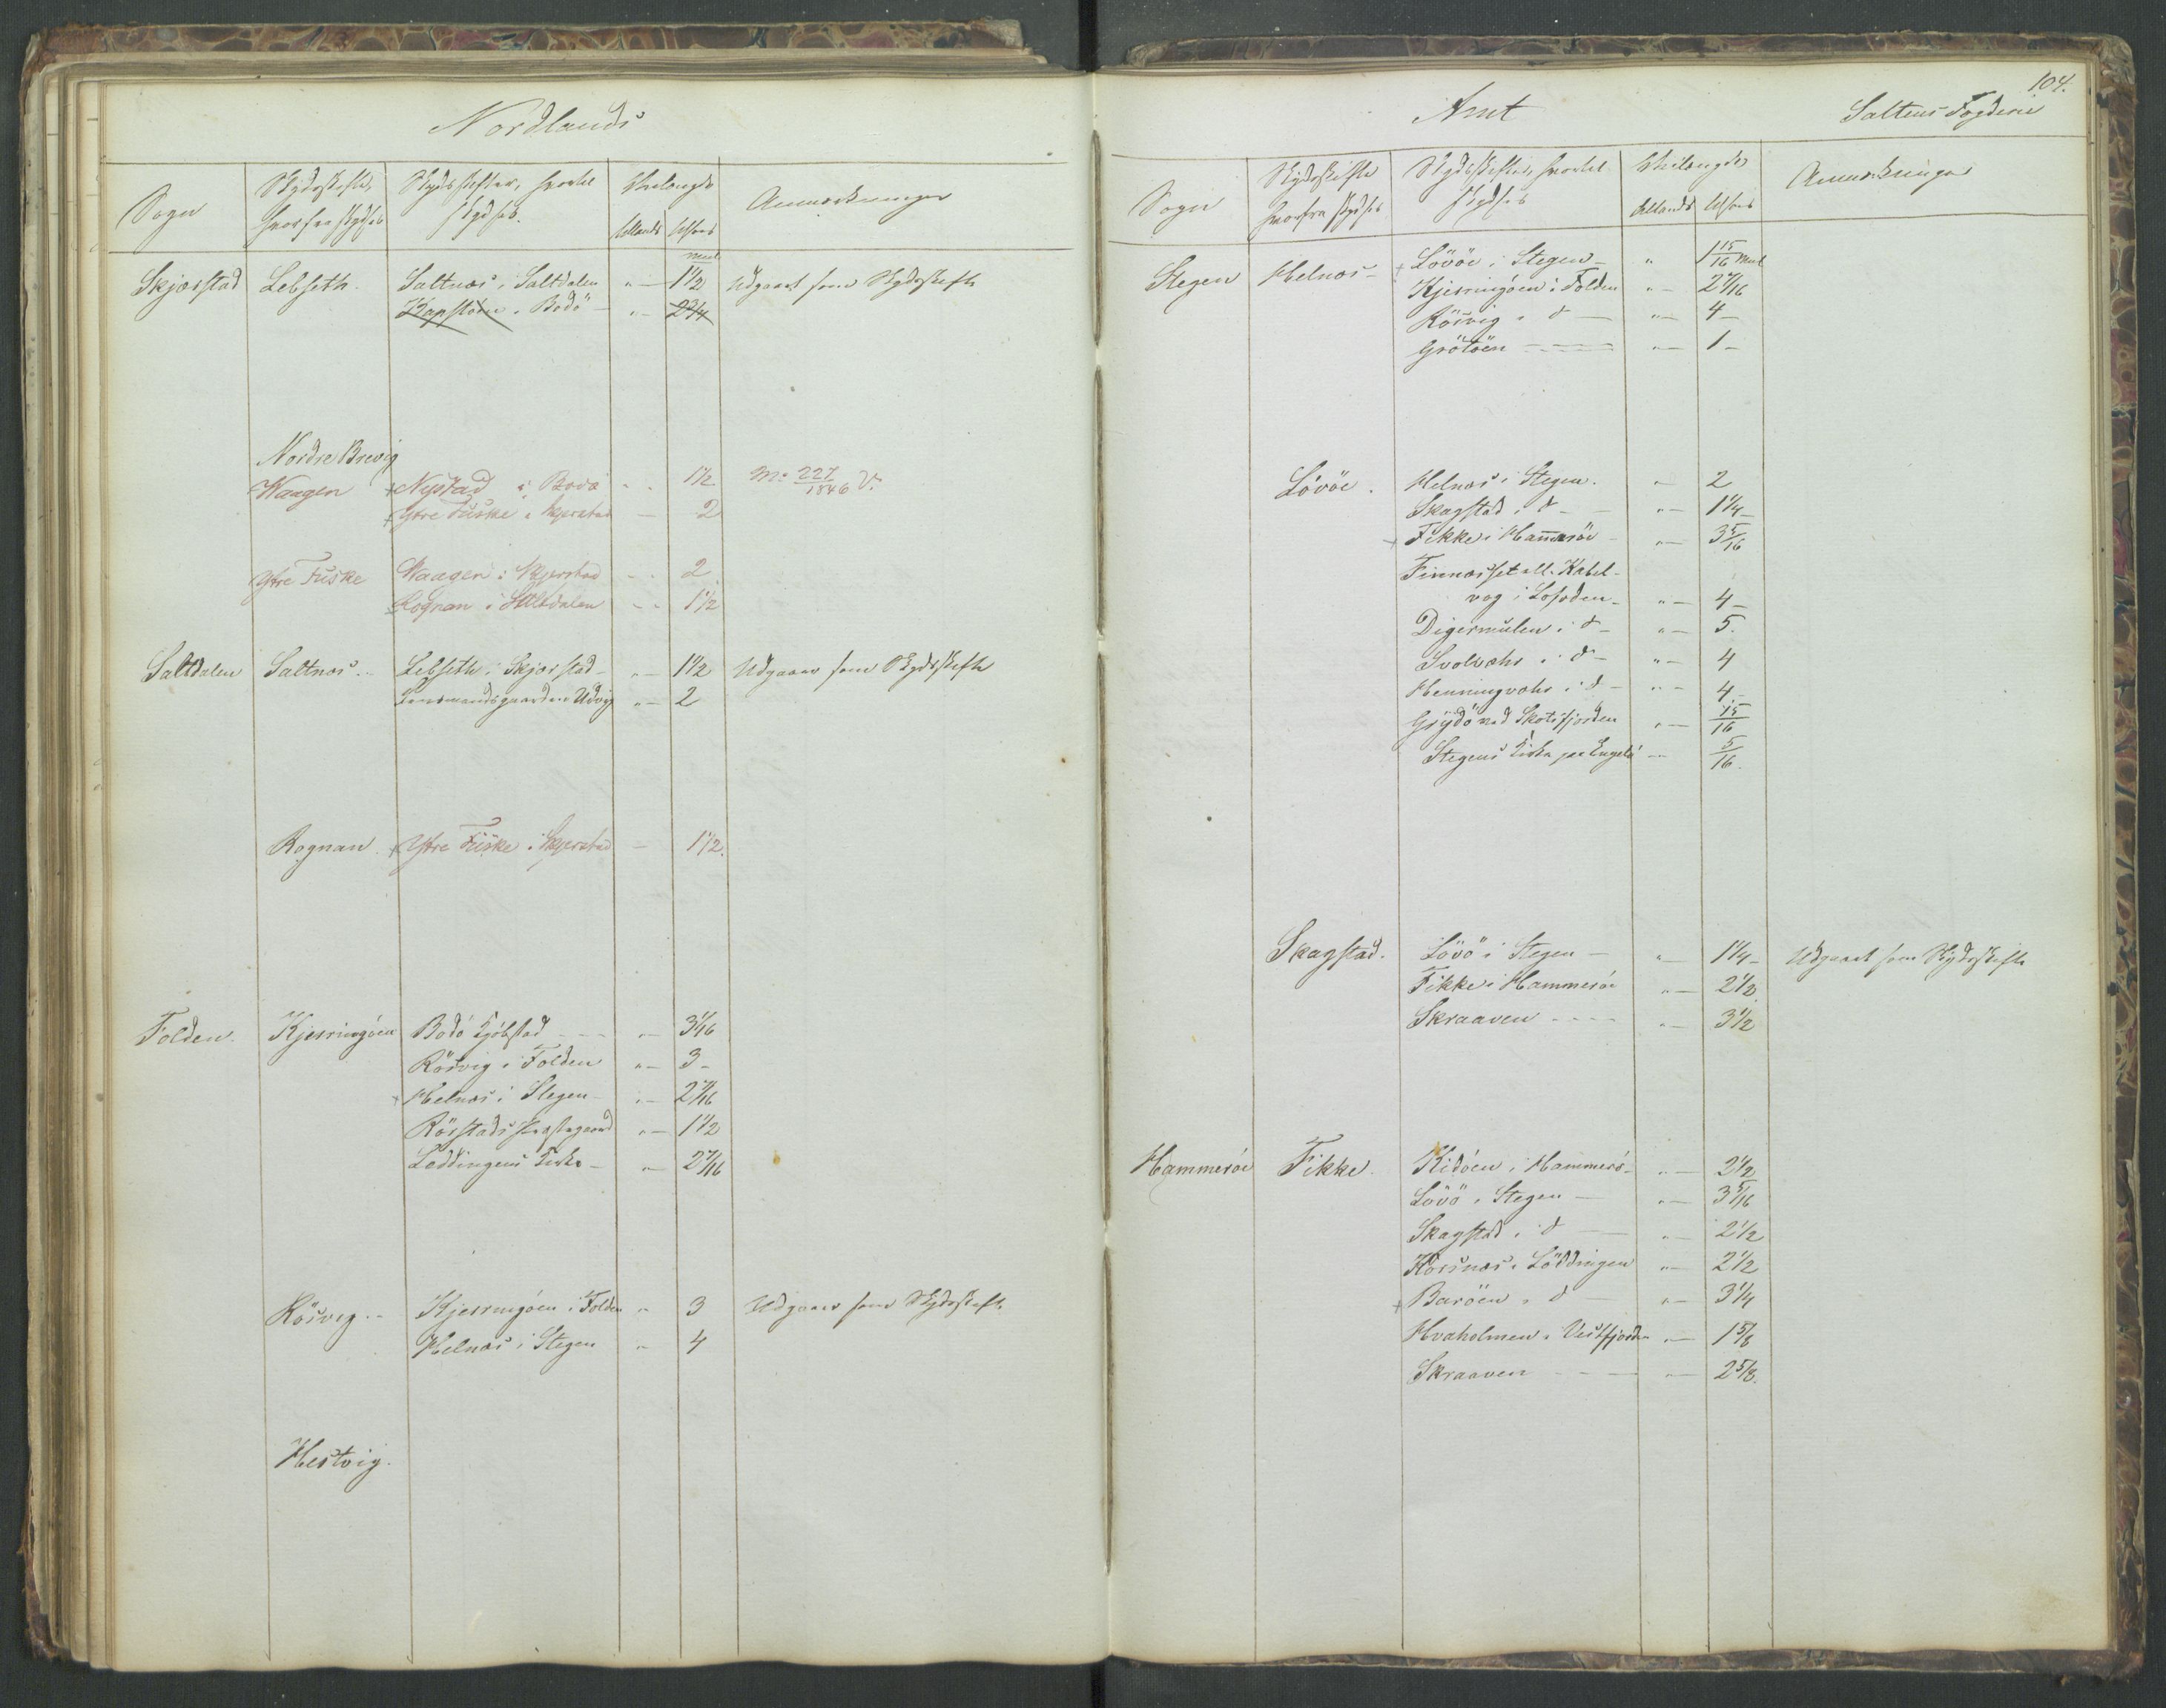 Nordlands
Sogn | Skydsskifte, hvorfra skydses | Skydsskifter, hvortil skydses. | Veilængde Tillands Tilsøes | Anmærkninger
Skjærstad Lebseth. Saltnæs i Saltdalen " — 1½ Miil Udgaaet som Skydsskifte
Kapstöen i Bodö — " — 2¾
Nordre Brevig
Waagen + Nystad i Bodö " " 1½ M: 227/1846 V.
+ Ytre Fuske i Skjerstad — 2
Ytre Fuske Waagen i Skjerstad - - 2
Rognan i Saltdalen - - 1½
Saltdalen Saltnæs.. Lebseth i Skjærstad - " — 1½ Udgaaer som Skydsskifte
Lensmandsgaarden Udvig " — 2
Rognan. + Ytre Fuske i Skjerstad — 1½.
Folden. Kjerringöen Bodö Kjöbstad - - - " — 3 1/16
Rösvig i Folden " — 3 -
+ Helnæs i Stegen - " — 2 7/16
Rörstads Præstegaard " — 1½
Loddingens Kirke - " — 2 7/16
Rösvig.. Kjerringöen i Folden " 3 Udgaaer som Skydsskifte
Helnæs i Stegen " 4
Hestvig.
104.
Amt Saltens Fogderie
Sogn | Skydsskifte hvorfra skydses | Skydsskifter, hvortil skydses | Veilængde Tillands Tilsøes | Anmærkninger
Stegen Helnæs - + Lövöe i Stegen - " 1 15/16 Miil
Kjerringöen i Folden " - 2 7/16
Rösvig i d — " — 4 -
Grötöen - - - - " — 1 -
Lövöe. Helnæs i Stegen. " 2
Skagstad i d - - " — 1¼ -
+ Fikke i Hameröe - " — 3 5/16
Finnæsset ell. Kabel-
vog i Lofoden - " — 4 -
Digermulen i d - " — 5.
Svolvær i d - " — 4
Henningvær i d - " - 4 -
Grydö ved Skotsfjorden " — 15/16
Stegens Kirke paa Engelö — 5/16.
Skagstad. Lövö i Stegen — " — 1¼ - Udgaaet som Skydsskifte
Fikke i Hammeröe " — 2½
Skraaven - - - - " — 3½
Hammeröe Fikke. Kidöen i Hammerö - " — 2½
Lövö i Stegen — " — 3 5/16
Skagstad i d — " — 2½
Korsnæs i Löddingen " — 2½
+ Baröen i d — " — 3¼
Hvaholmen i Vestfjorden " — 1 5/8
Skraaven - - - " — 2 5/8.